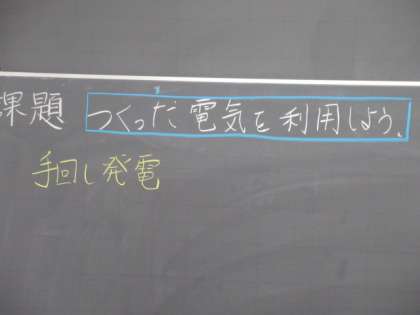 課題 つくった電気を利用しよう。
手回し発電